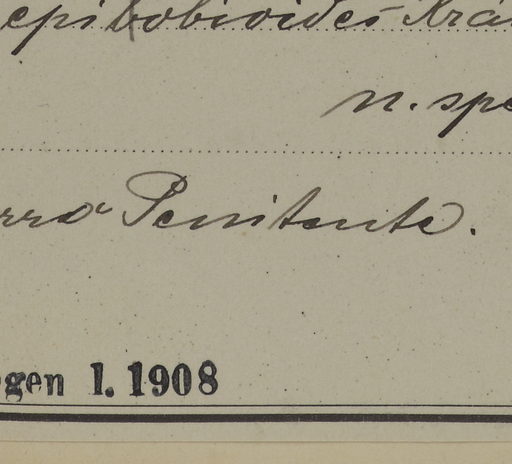 epibobioides Krá
n. spe
rra Penitente.
gen 1. 1908